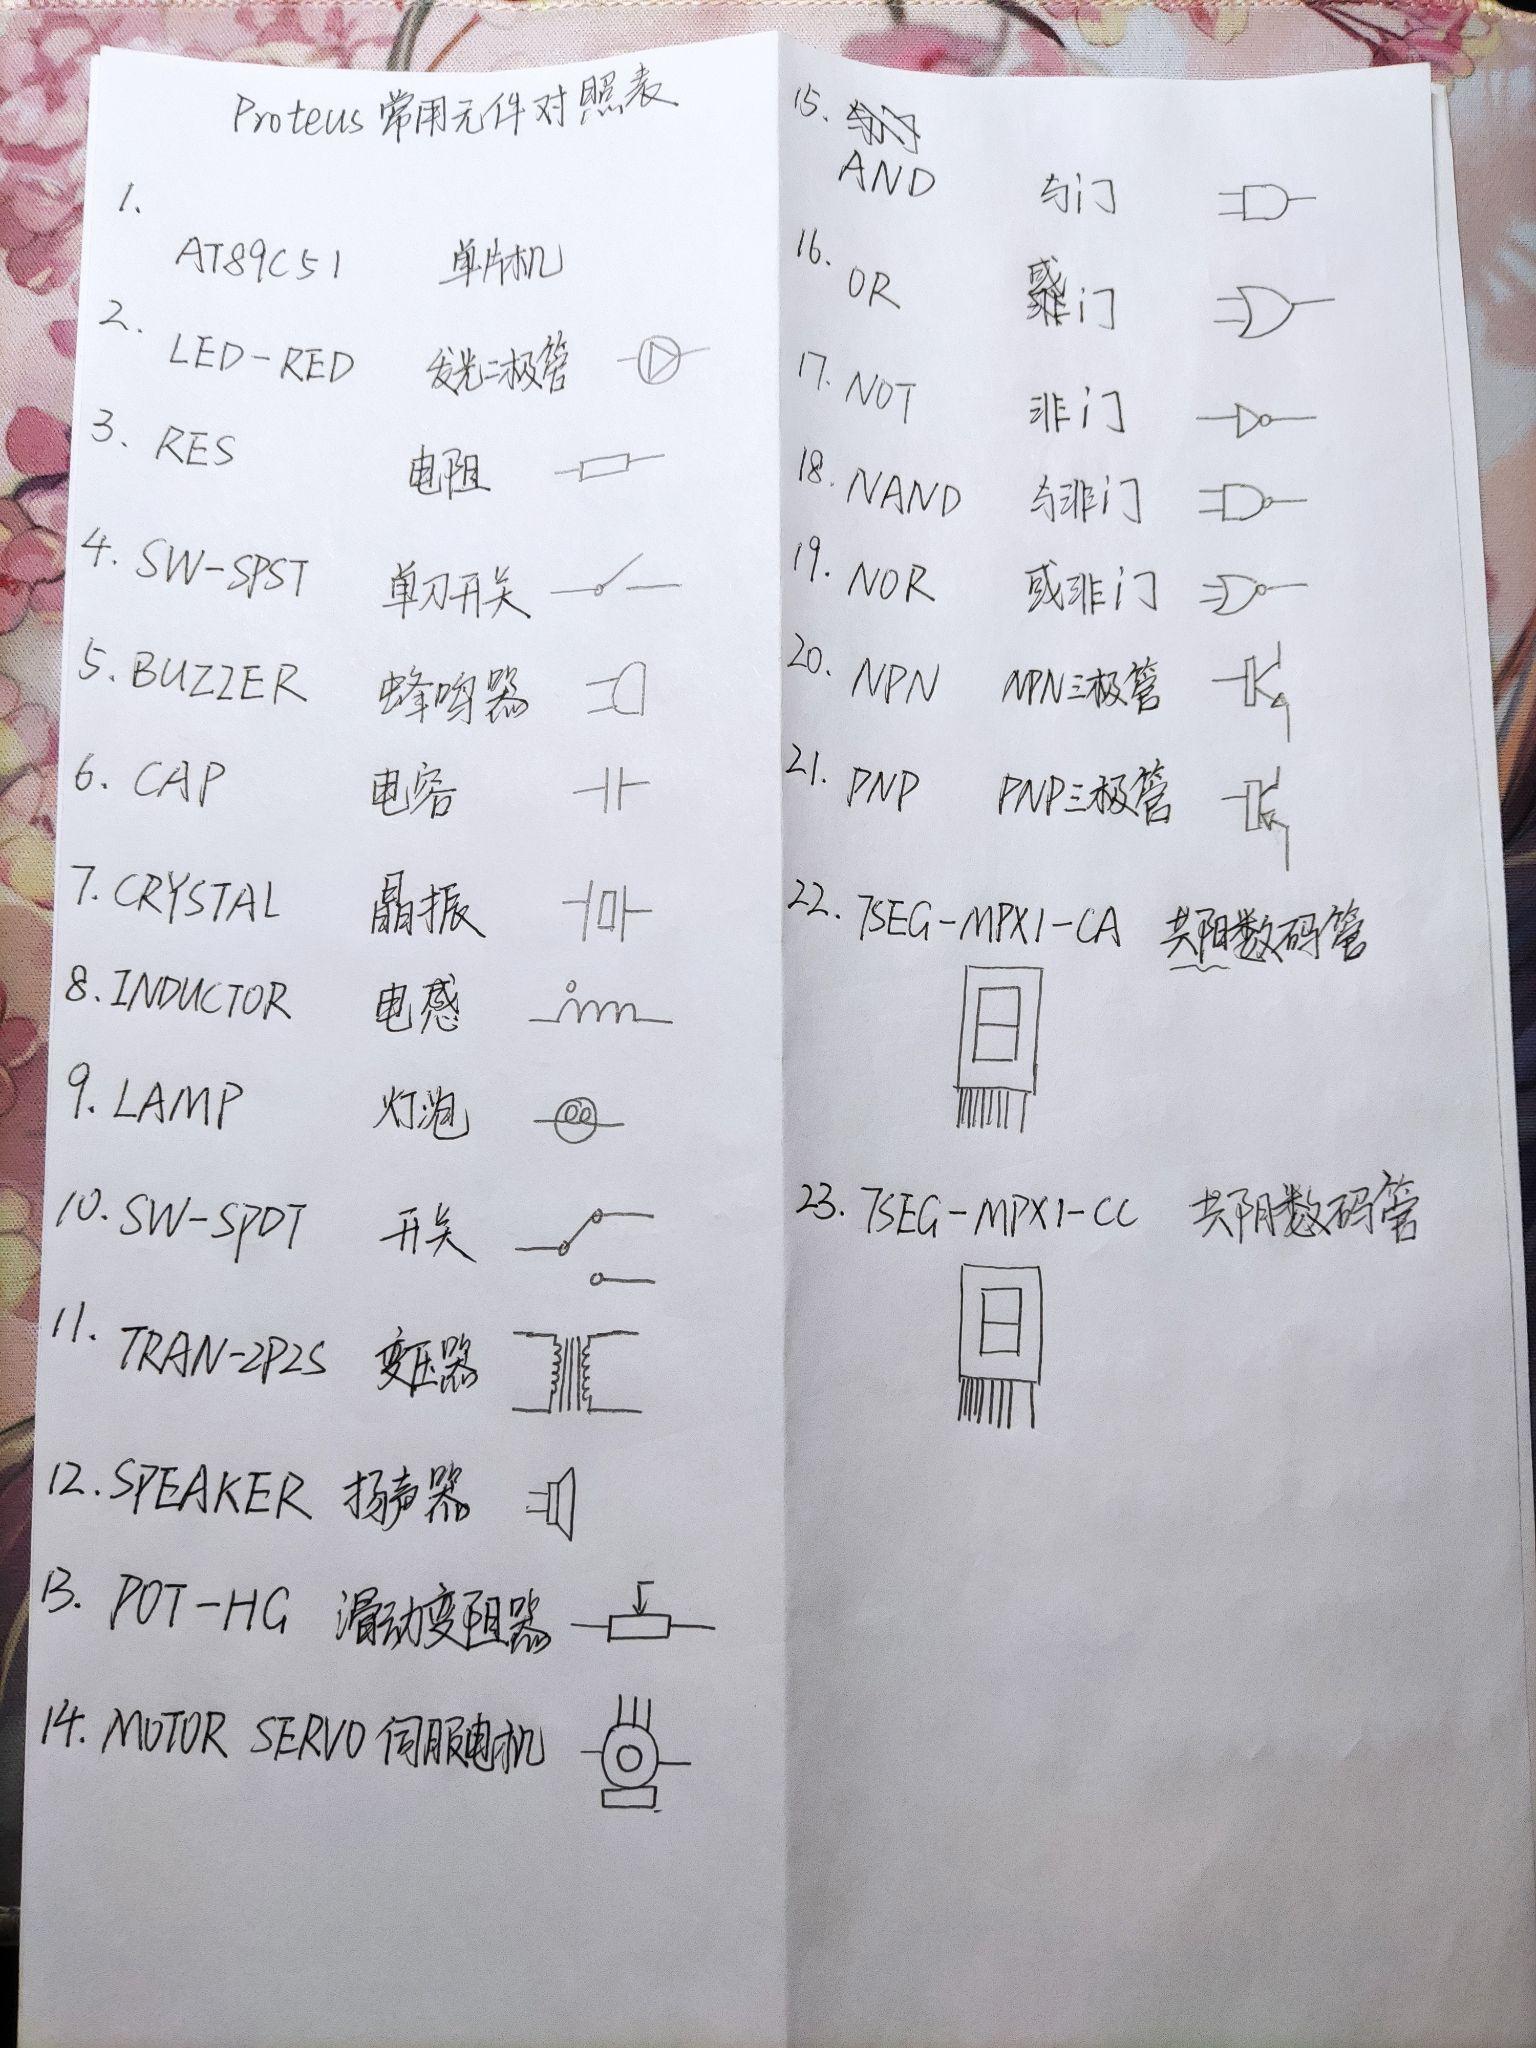 Proteus 常用元件对照表
1.
AT89C51 单片机
2.
LED-RED 发光二极管
3. RES 电阻
4. SW-SPST 单刀开关
5. BUZZER 蜂鸣器
6. CAP 电容
7. CRYSTAL 晶振
8. INDUCTOR 电感
9. LAMP 灯泡
10. SW-SPDT 开关
11. TRAN-2P2S 变压器
12. SPEAKER 扬声器
13. POT-HG 滑动变阻器
14. MOTOR SERVO 伺服电机
15.
AND 与门
16. OR 或门
17. NOT 非门
18. NAND 与非门
19. NOR 或非门
20. NPN NPN三极管
21. PNP PNP三极管
22. 7SEG-MPX1-CA 共阳数码管
23. 7SEG-MPX1-CC 共阴数码管